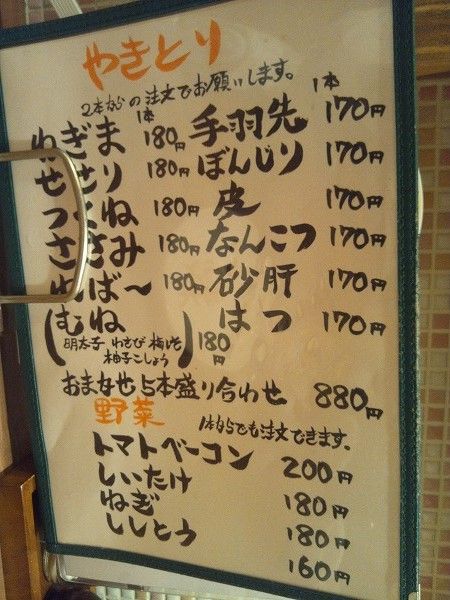 やきとり
2本からの注文でお願いします。
1本 1本
ねぎま 180円 手羽先 170円
せせり 180円 ぼんじり 170円
つくね 180円 皮 170円
ささみ 180円 なんこつ 170円
ればー 180円 砂肝 170円
むね 180円 はつ 170円
(明太子 わさび 梅しそ
柚子こしょう)
おまかせ5本盛り合わせ 880円
野菜
1本からでも注文できます。
トマトベーコン 200円
しいたけ 180円
ねぎ 180円
ししとう 160円